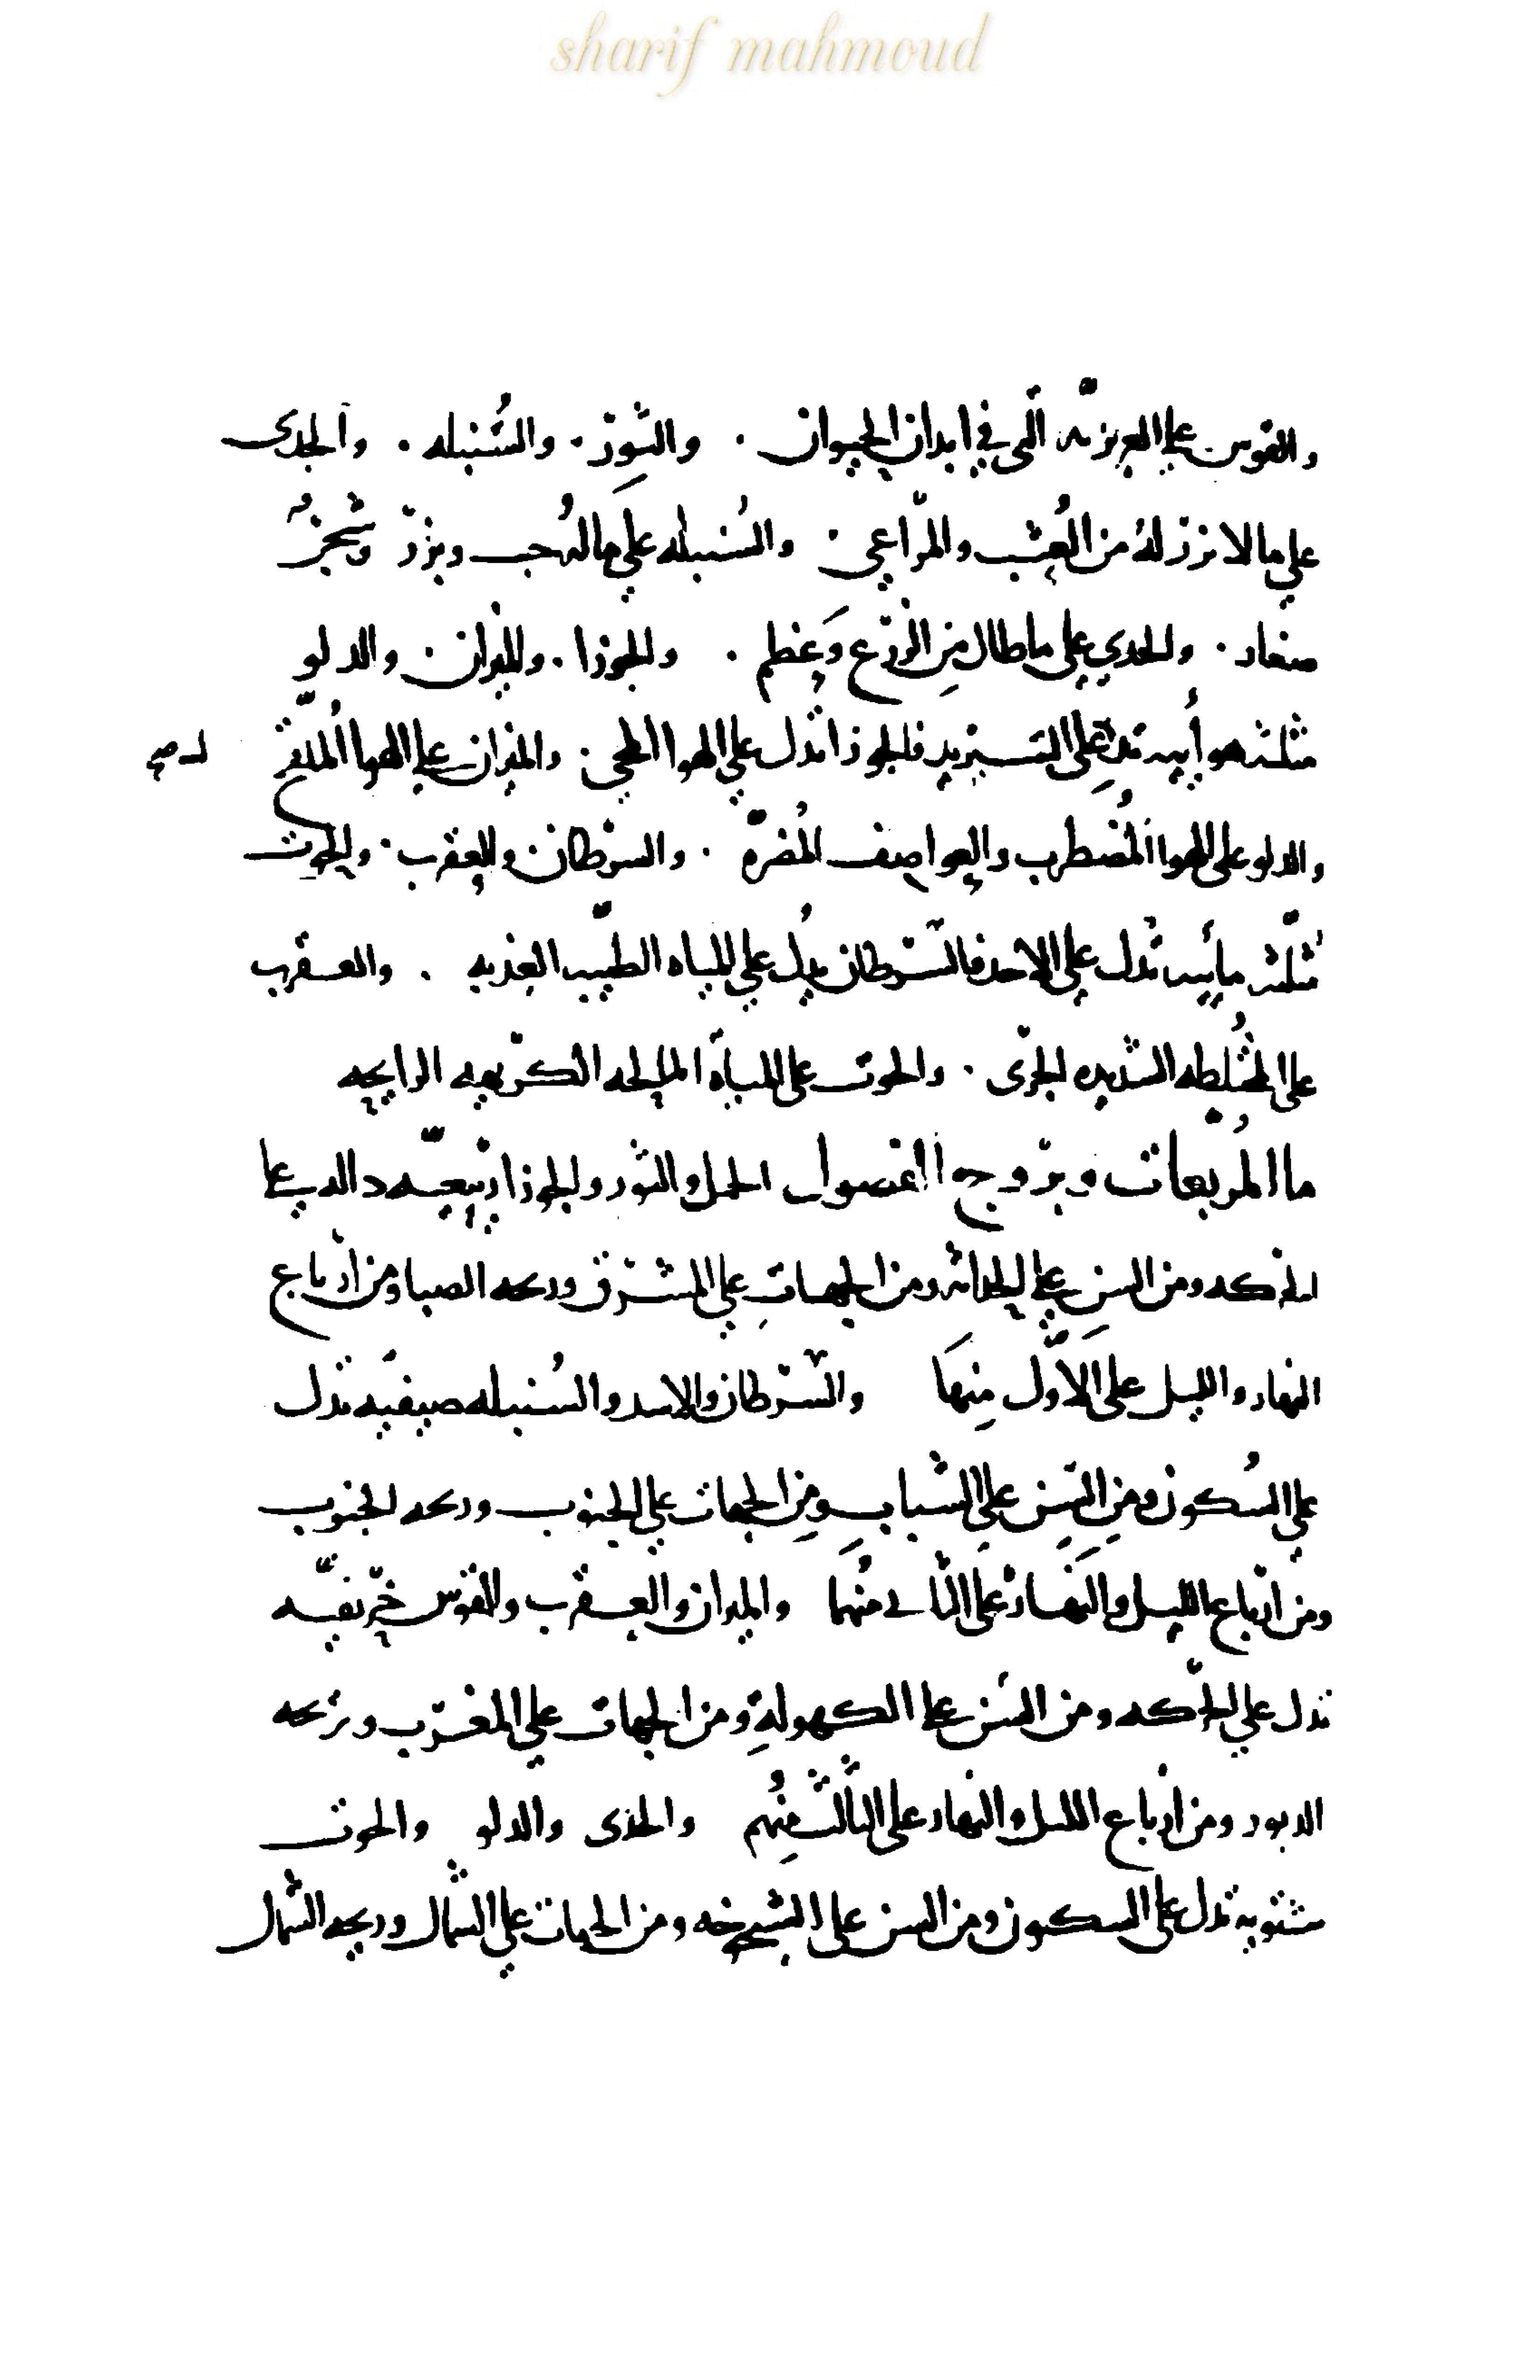 sharif mahmoud
والقوس على الغريزيه التى في ابدان الحيوان . والثور . والسُنبله . والجدى
على ما لا بزر له من العُشب والمراعي . والسُنبله على ما له حب وبزر وشجر
صغار . والجدي على ما طال من الزرع وعظم . والجوزا . والميزان . والدلو
مثلثه هوأييه تدل على التـ فالجوزا تدل على الهوا الحي . والميزان على الهوا المُلقح
والدلو على الهوا المُضطرب والعواصف المُضره . والسرطان والعقرب . والحوت
مثلثه مأييه تدل على فالسرطان يدل على المياه الطيبه العذبه . والعقرب
على المُخلطه الشديده الجرى . والحوت على المياه المالحه الكريهيه الرايحه
ما المُربعات وبروج الفصول الحمل والثور والجوزا ربيعيه دالـه على
الحركه ومن السن على الحداثه ومن الجهات على المشرق وريحه الصبا ومن ارباع
النهار والليل على الأول منها والسرطان والاسد والسُنبله صيفيه تدل
على السُكون ومن السن على الشباب ومن الجهات على الجنوب وريحه الجنوب
ومن ارباع الليل والنهار على الثاني منُهما والميزان والعقرب والقوس خريفيه
تدل على الحركه ومن السن على الكهولةِ ومن الجهات على المغرب وريحه
الدبور ومن ارباع الليل والنهار على الثالث منُهم والجدى والدلو والحوت
شتويه تدل على السكون ومن السن على الشيخوخه ومن الجهات على الشمال وريحه الشمال